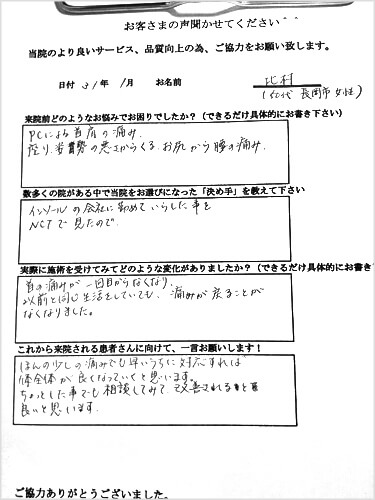 お客さまの声聞かせてください^^
当院のより良いサービス、品質向上の為、ご協力をお願い致します。
日付 31年 1月 お名前 北村
(50代 長岡市 女性)
来院前どのようなお悩みでお困りでしたか?(できるだけ具体的にお書き下さい)
PCによる首肩の痛み.
座り姿勢の悪さからくる お尻から腰の痛み.
数多くの院がある中で当院をお選びになった「決め手」を教えて下さい
インソールの会社に勤めていらした事を
NCTで見たので.
実際に施術を受けてみてどのような変化がありましたか?(できるだけ具体的にお書き
首の痛みが一回目からなくなり.
以前と同じ生活をしていても、痛みが戻ることが
なくなりました。
これから来院される患者さんに向けて、一言お願いします!
ほんの少しの痛みでも早いうちに対応すれば
体全体が良くなっていくと思います。
ちょっとした事でも相談してみて改善されると
良いと思います.
ご協力ありがとうございました。